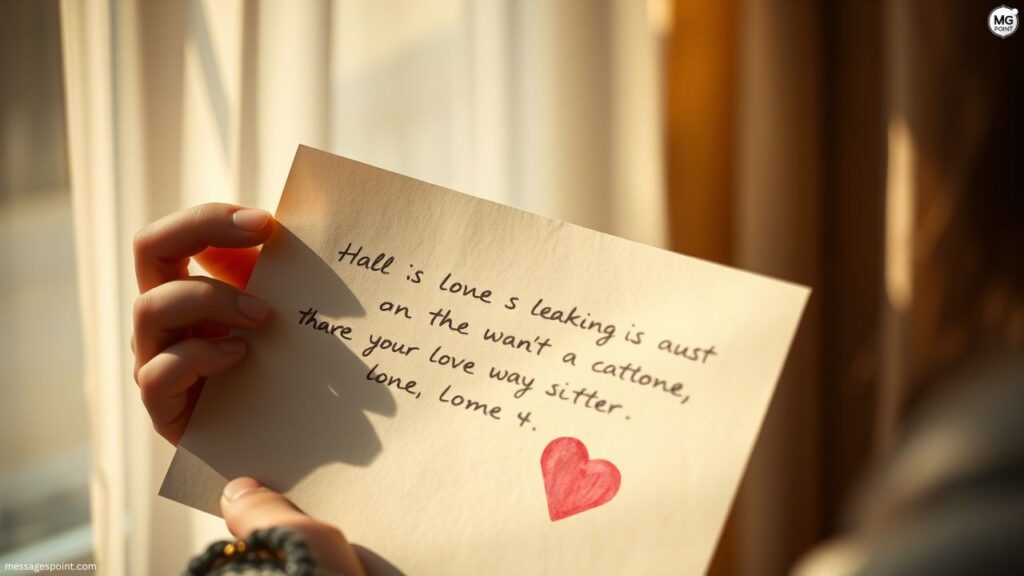 MG
POINT
Hall is lone s leaking is aust
an the wan't a cattone,
thare your love way sitter.
lone, lome 4.
messagespoint.com